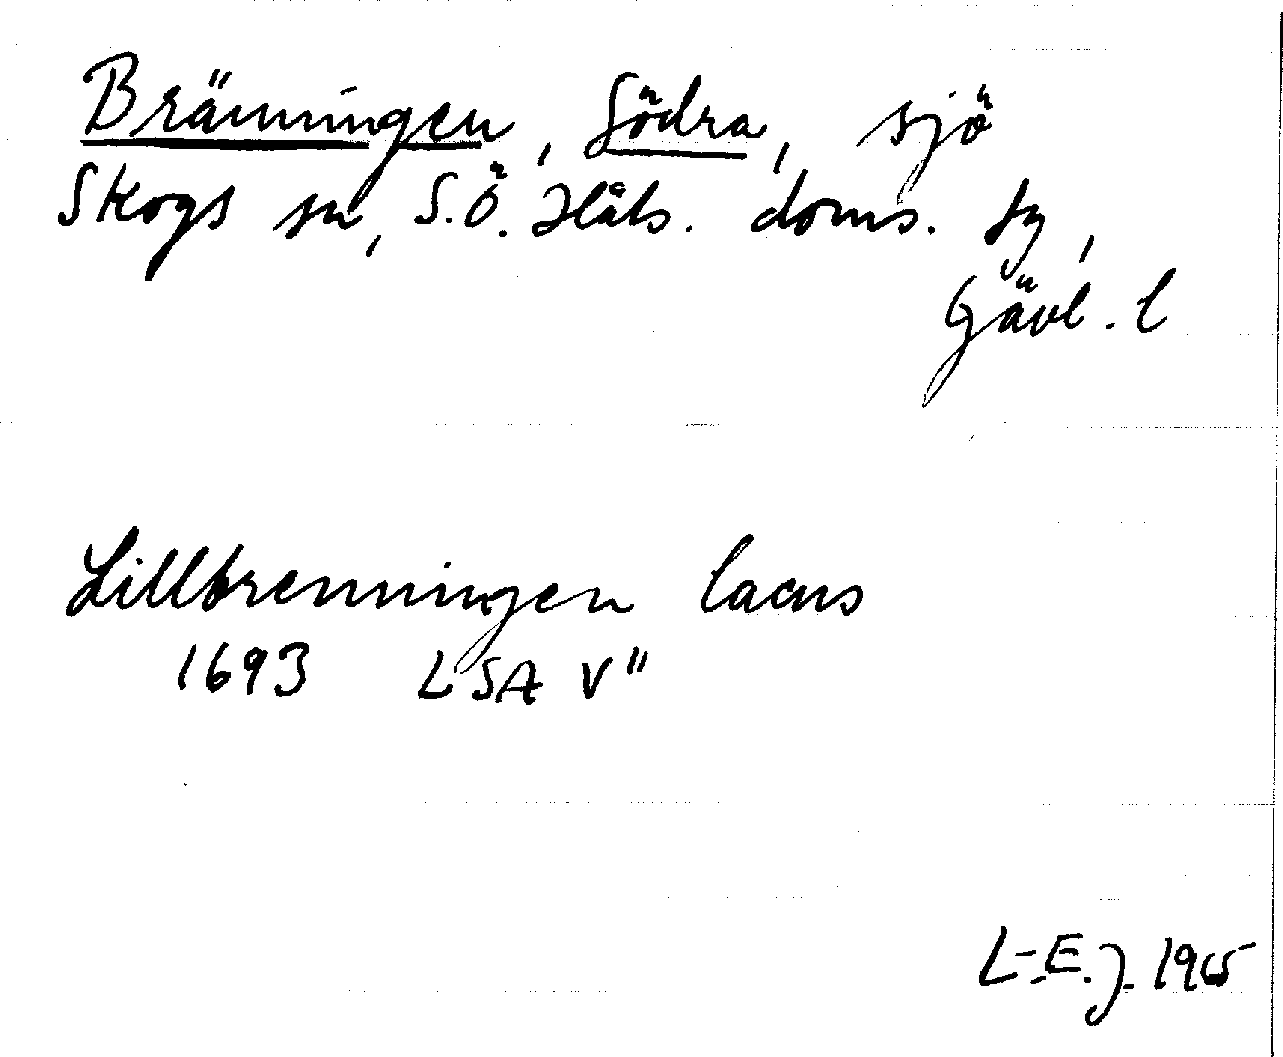 Bränningen, Södra, sjö
Skogs sn, S.Ö. Häls. doms. tg,
Gävl. l
Lillbrenningen lacus
1693 LSA V"
L-E.J. 1965